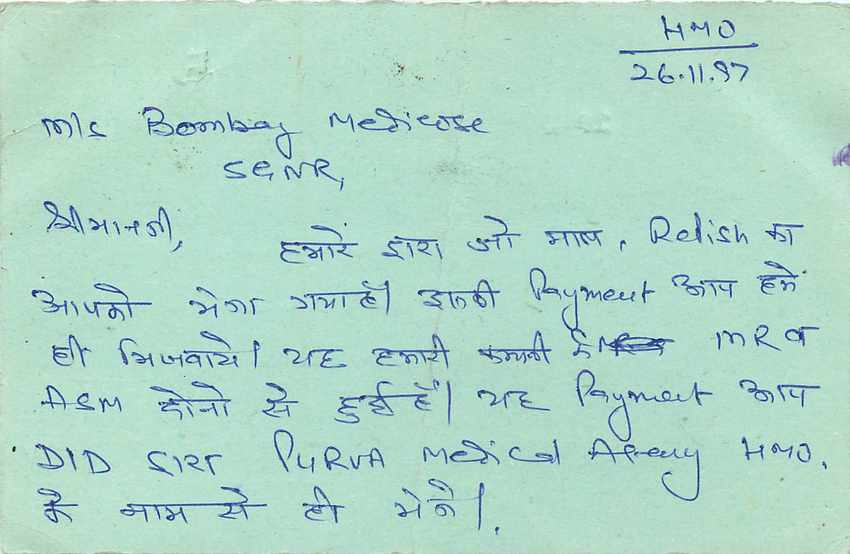 HMO
26.11.97
M/s Bombay Medicose
SGNR,
श्रीमानजी,
हमारे द्वारा जो माल, Relish का
आपको भेजा गया है। इसकी Payment आप हमें
ही भिजवाये। यह हमारी कम्पनी के MR व
ASM दोनो से हुई है। यह Payment आप
D/D द्वारा PURVA Medical Agency HMO.
के नाम से ही भेजे।